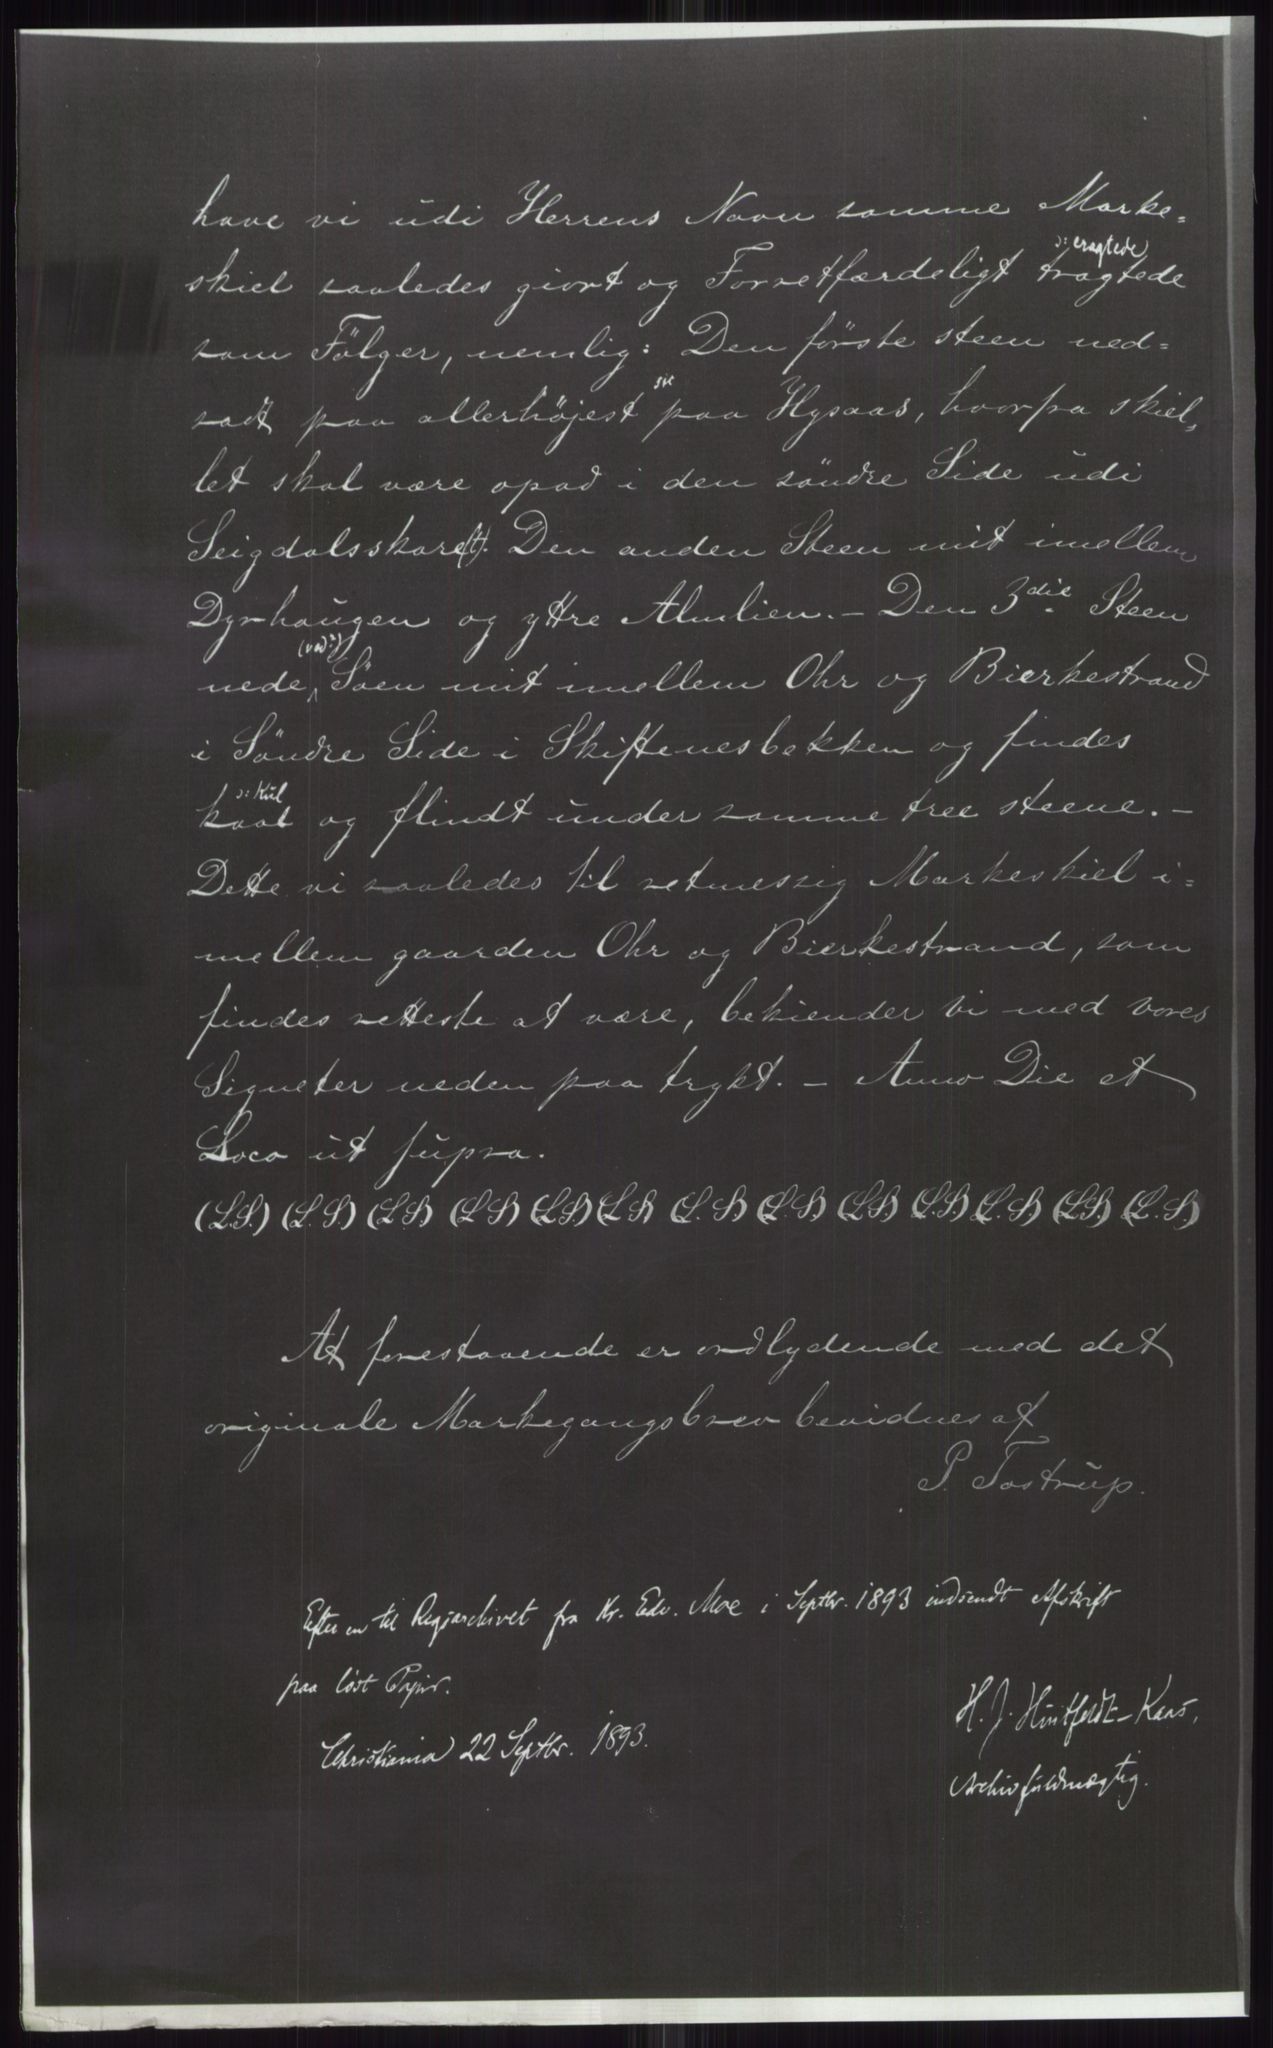 have vi udi Herrens Navn samme Marke=
skiel saaledes giort og Forretfærdeligt tragtede
ɔ: eragtede
som Fölger, nemlig: Den förste steen ned=
sadt paa allerhöjest paa Hysaas, hvorfra skiel=
sic
let skal være opad i den söndre Side udi
Seigdalsskare(t). Den anden Steen mit imellem
Dyrhaugen og yttre Almlien. – Den 3die Steen
nede (ved?) Söen mit imellem Ohr og Bierkestrand
i Söndre Side i Skiftenesbekken og findes
kaal og flindt under samme tree steene. –
ɔ: Kul
Dette vi saaledes til retmessig Markeskiel i=
mellem gaarden Ohr og Bierkestrand, som
findes retteste at være, bekiender vi med vores
Signeter neden paa trykt. – Anno Die et
Loco ut supra.
(L.S.) (L.S.) (L.S) (L.S) (L.S) (L.S) (L.S) (L.S) (L.S) (L.S) (L.S) (L.S.) (L.S.)
At forestaaende er ordlydende med det
originale Markegangsbrev bevidnes af
P. Tostrup.
Efter en til Rigsarchivet fra Kr. Edv. Moe i Septbr. 1893 indsendt Afskrift
paa løst Papir.
Christiania 22 Septbr. 1893.
H. J. Huitfeldt-Kaas,
Archivfuldmægtig.